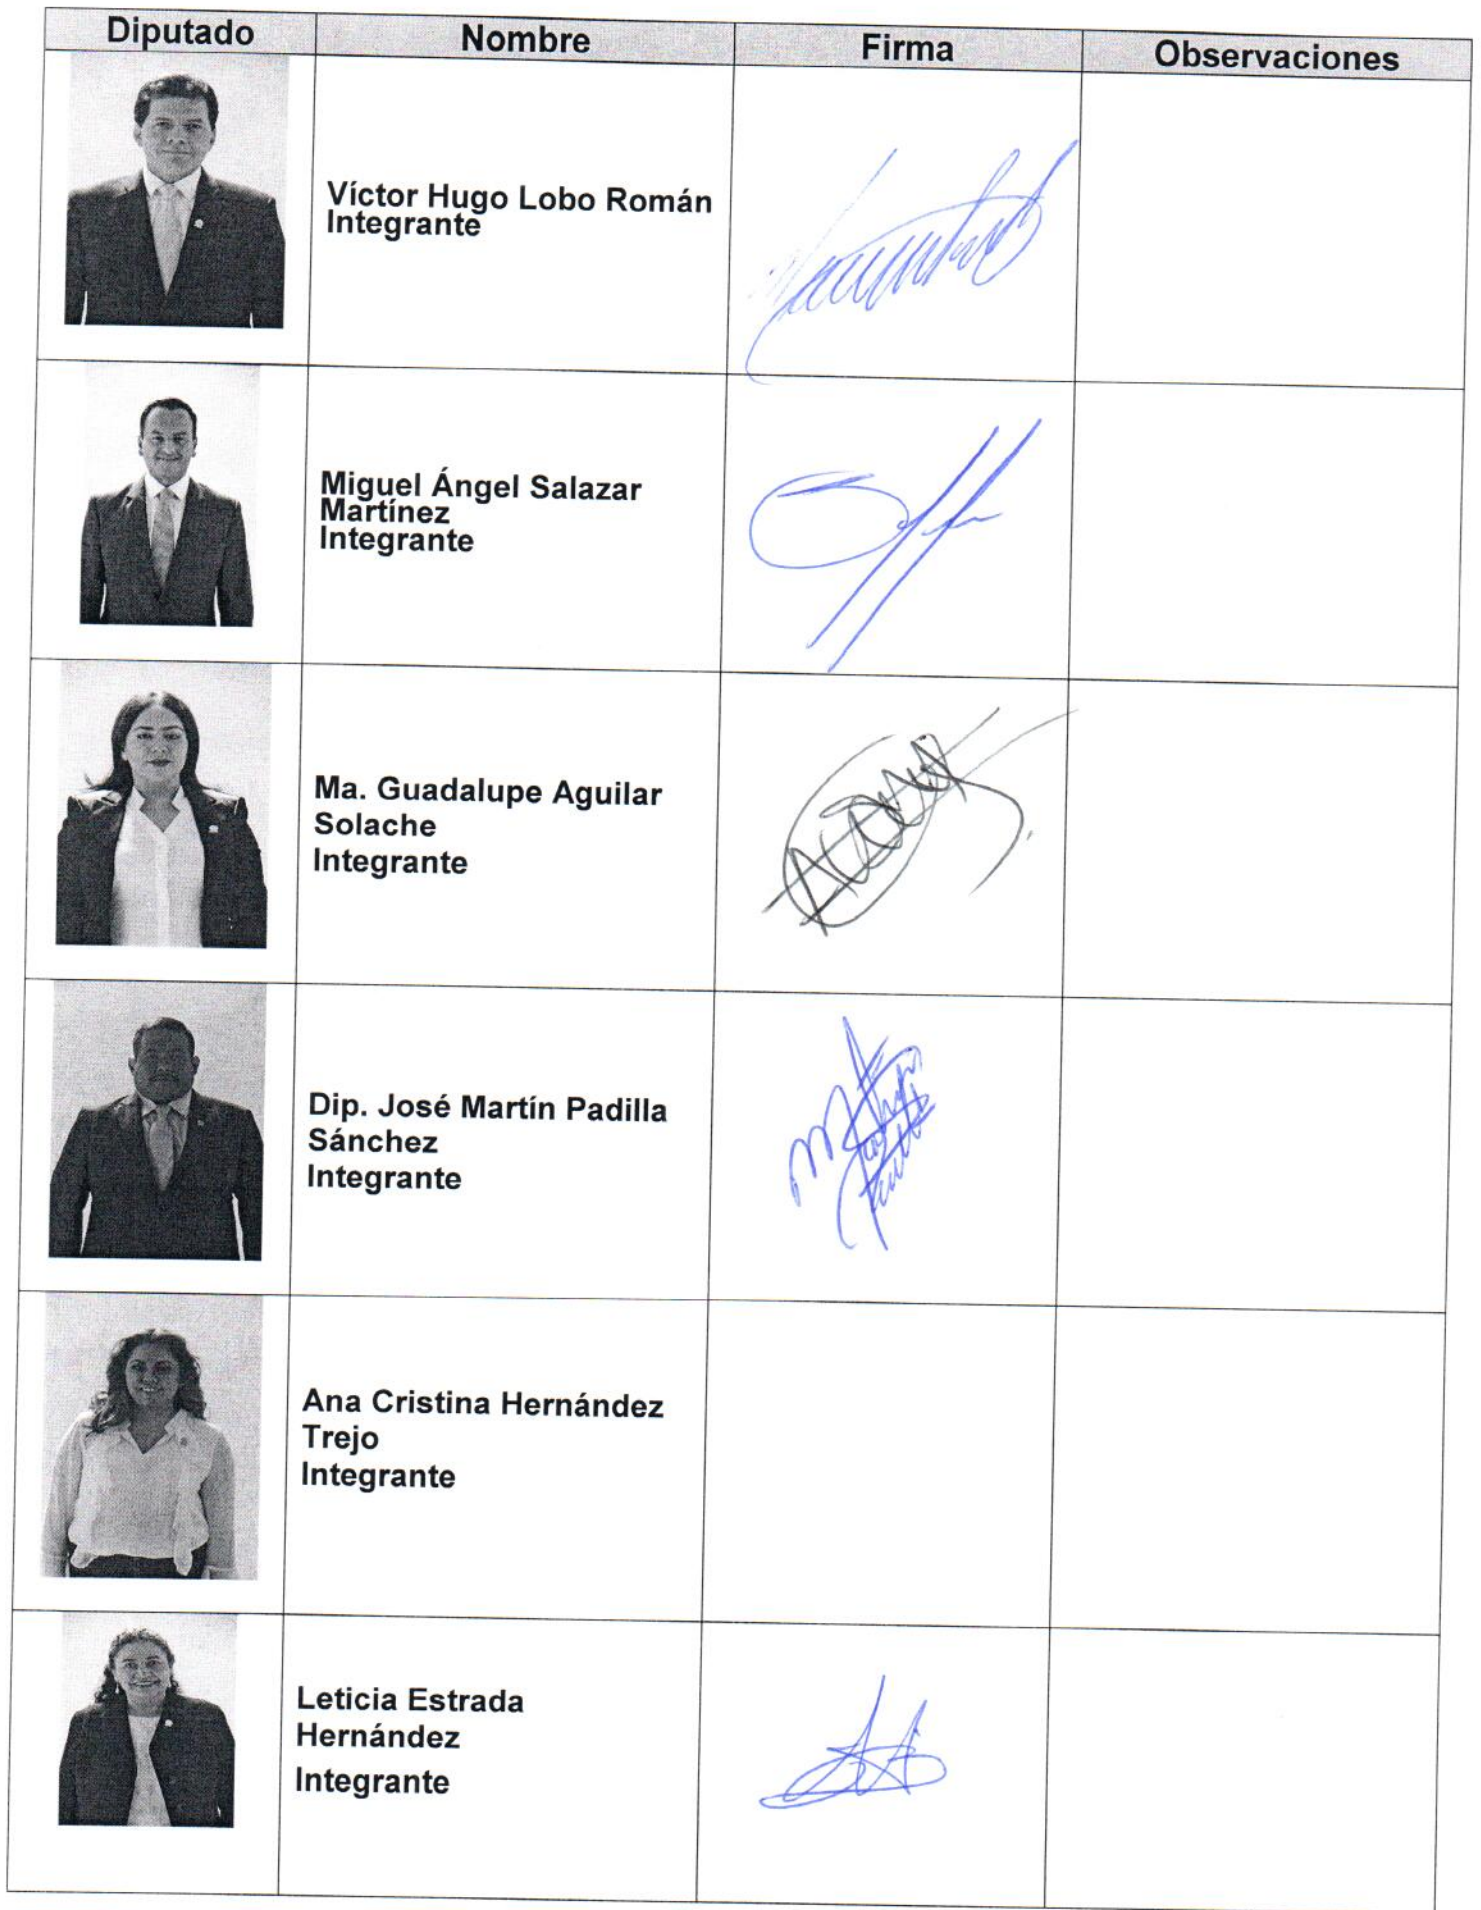 Diputado Nombre Firma Observaciones
Víctor Hugo Lobo Román
Integrante
Miguel Ángel Salazar
Martínez
Integrante
Ma. Guadalupe Aguilar
Solache
Integrante
Dip. José Martín Padilla
Sánchez
Integrante
Ana Cristina Hernández
Trejo
Integrante
Leticia Estrada
Hernández
Integrante